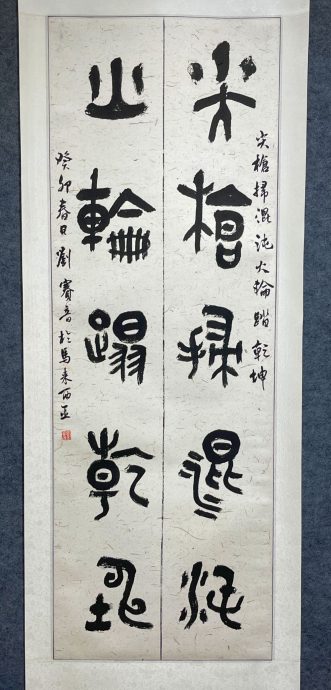 尖槍掃混沌火輪踏乾坤
尖槍掃混沌
火輪蹋乾坤
癸卯春日劉賽音於馬来西亚